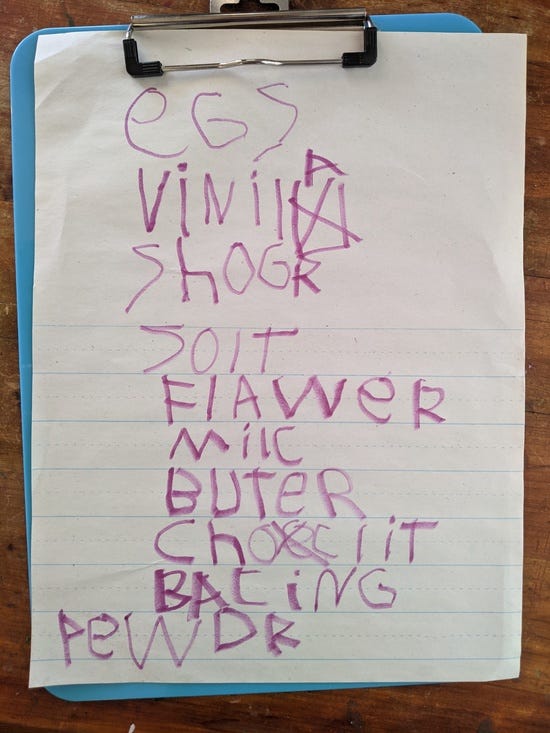 eGS
ViNillA
ShOGR
SOlT
FlAWeR
MilC
BUTeR
ChOcliT
BACiNG
PeWDR